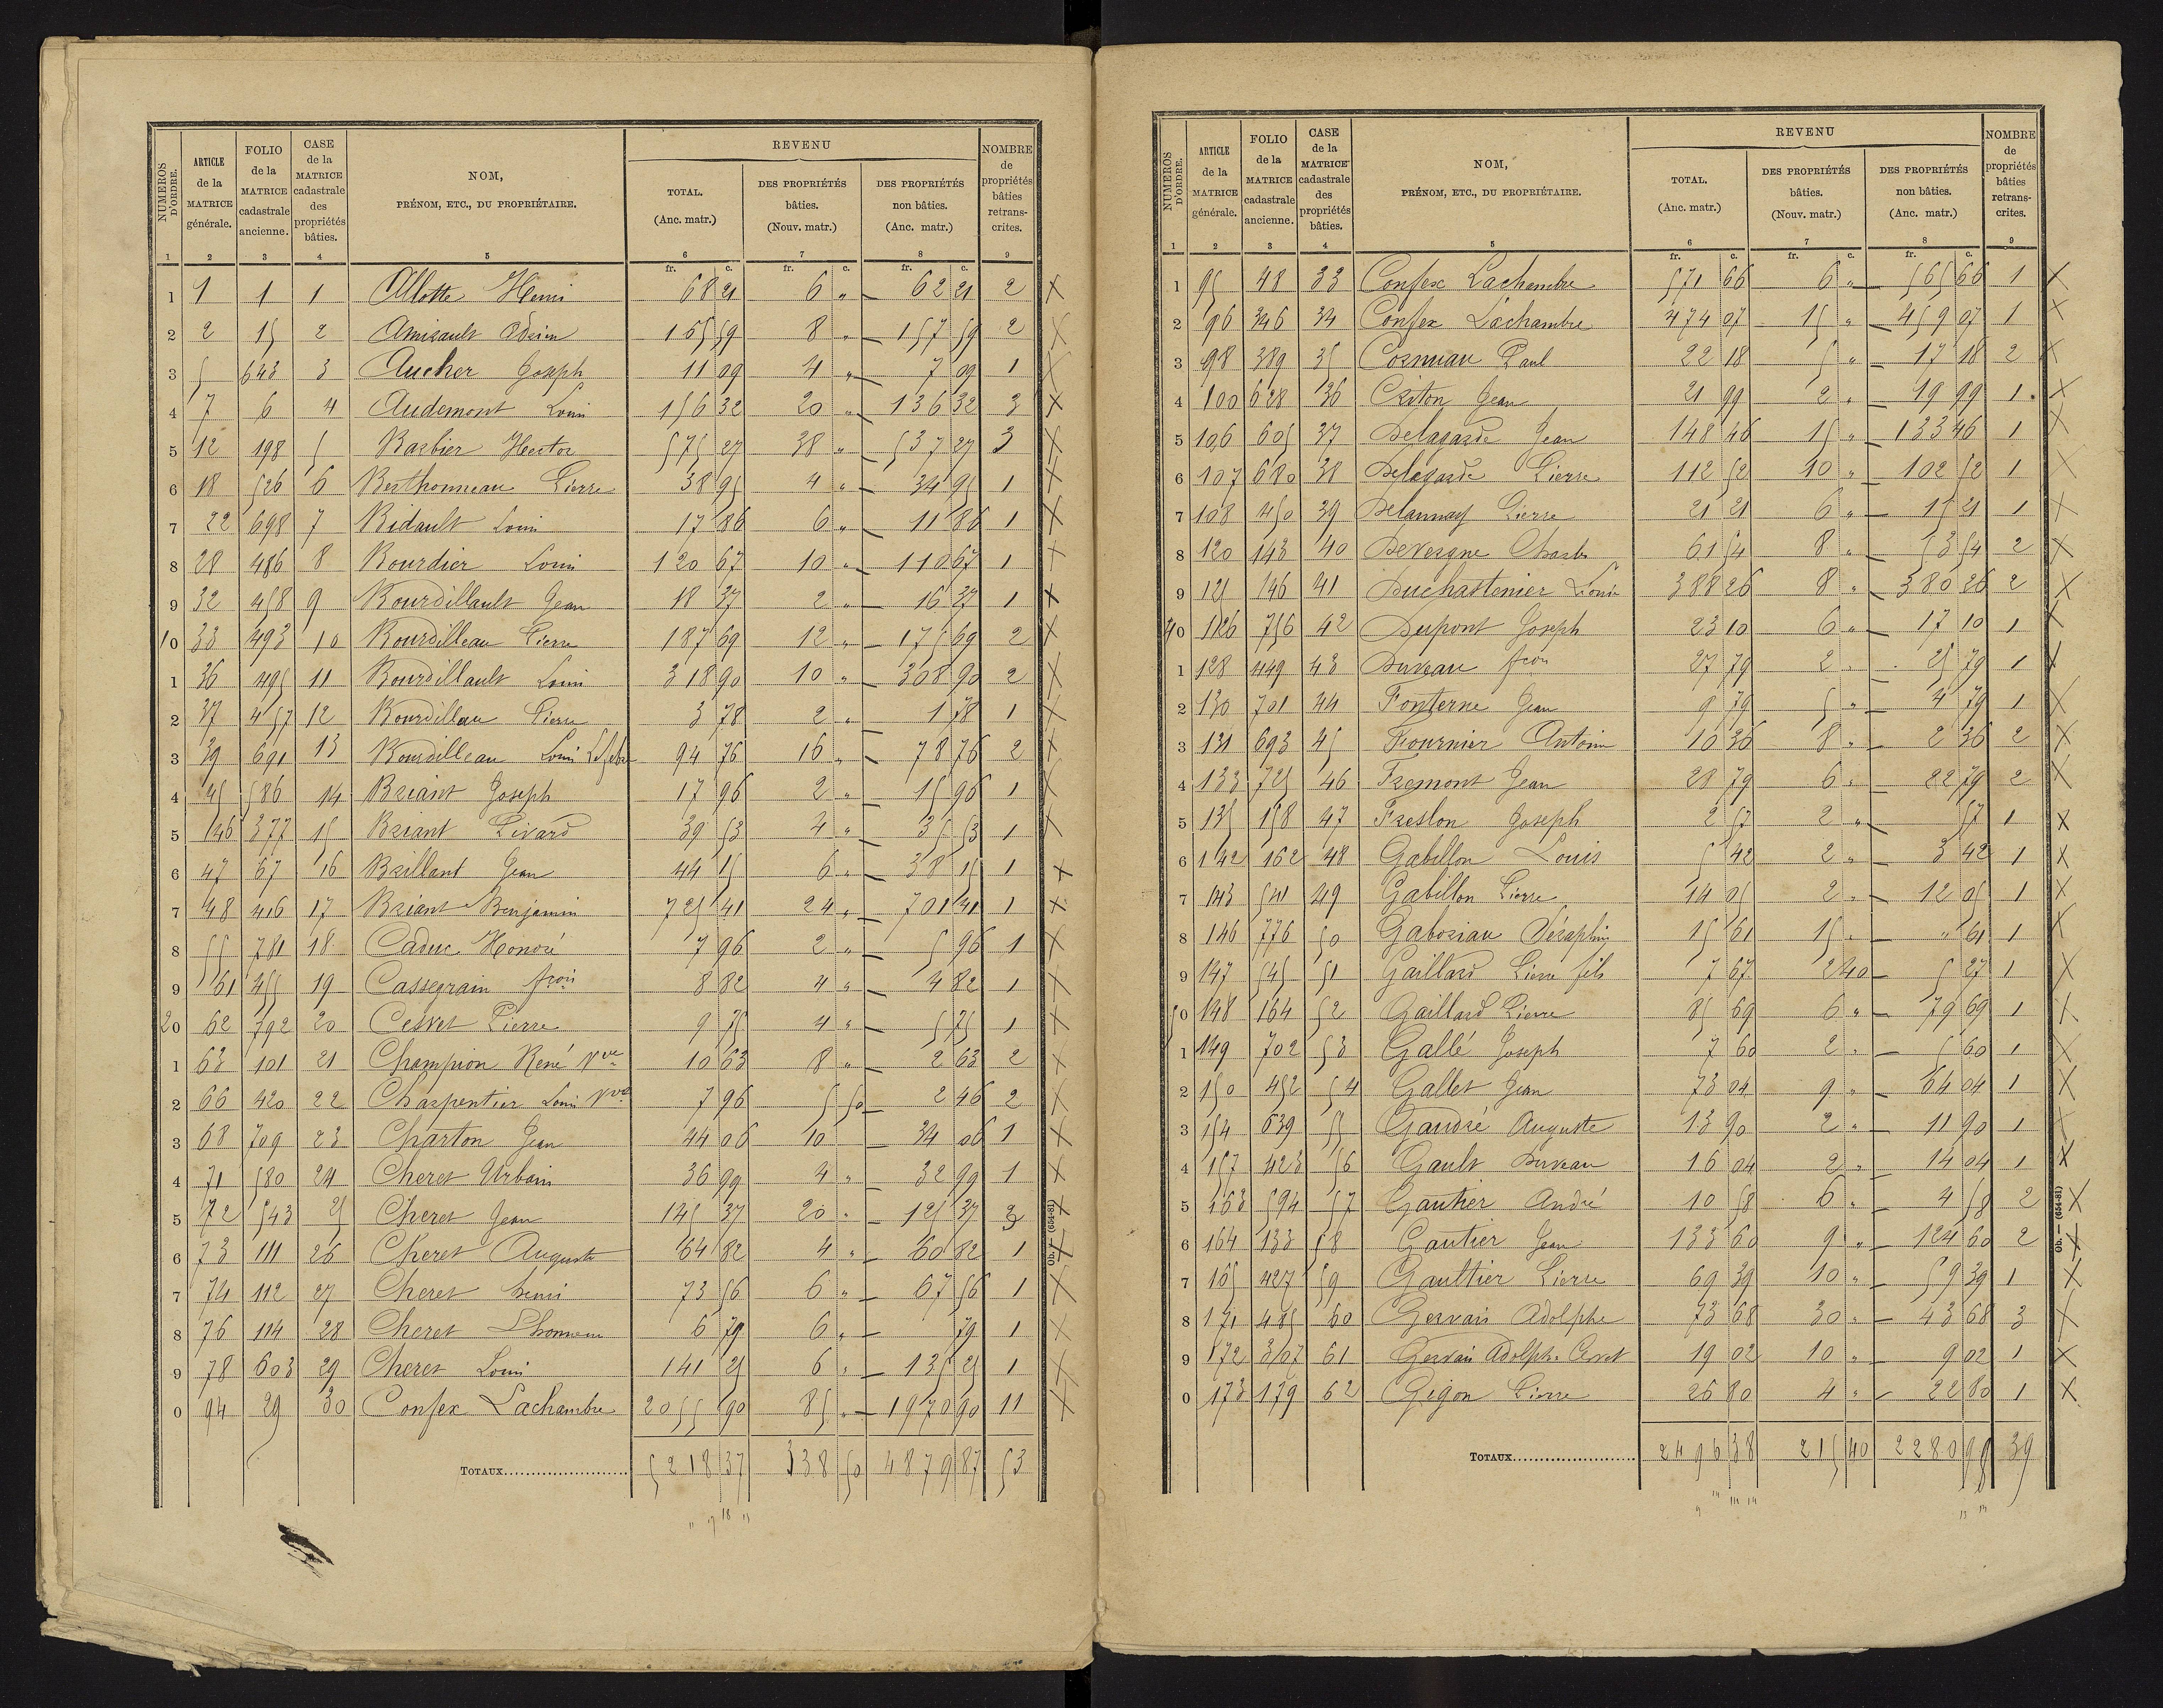 NUMÉROS D'ORDRE. | ARTICLE de la MATRICE générale. | FOLIO de la MATRICE cadastrale ancienne. | CASE de la MATRICE cadastrale des propriétés bâties. | NOM, PRÉNOM, ETC., DU PROPRIÉTAIRE. | REVENU TOTAL. (Anc. matr.) | DES PROPRIÉTÉS bâties. (Nouv. matr.) | DES PROPRIÉTÉS non bâties. (Anc. matr.) | NOMBRE de propriétés bâties retranscrites.
1 2 3 4 5 6 7 8 9
fr. c. fr. c. fr. c.
1 1 1 1 Allotte Henri 68 21 6 " 62 21 2 X
2 2 15 2 Amirault 165 59 8 " 157 59 2 X
3 5 643 3 Aucher Joseph 11 09 4 " 7 09 1 X
4 7 6 4 Audemont Louis 156 32 20 " 136 32 3 X
5 12 198 5 Barbier Hector 575 27 38 " 537 27 3 X
6 18 526 6 Berthonneau Pierre 38 95 4 " 34 95 1 X
7 22 698 7 Bidault Louis 17 86 6 " 11 86 1 X
8 28 486 8 Bourdier Louis 120 67 10 " 110 67 1 X
9 32 458 9 Bourdillault Jean 18 37 2 " 16 37 1 X
10 33 493 10 Bourdilleau Pierre 187 69 12 " 175 69 2 X
1 36 495 11 Bourdillault Louis 318 90 10 " 308 90 2 X
2 37 457 12 Bourdilleau Pierre 3 78 2 " 1 78 1 X
3 39 691 13 Bourdilleau Louis Lefebre 94 76 16 " 78 76 2 X
4 45 586 14 Briant Joseph 17 96 2 " 15 96 1 X
5 146 377 15 Briant Livard 39 53 4 " 35 53 1 X
6 47 67 16 Brillant Jean 44 15 6 " 38 15 1 X
7 48 416 17 Briant Benjamin 725 41 24 " 701 41 1 X
8 55 781 18 Caduc Honoré 7 96 2 " 5 96 1 X
9 61 455 19 Cassegrain frois 8 82 4 " 4 82 1 X
20 62 792 20 Cesvet Pierre 9 75 4 " 5 75 1 X
1 63 101 21 Champion René Vve 10 63 8 " 2 63 2 X
2 66 420 22 Charpentier Louis Vve 7 96 5 50 2 46 2 X
3 68 709 23 Charton Jean 44 06 10 34 06 1 X
4 71 580 24 Cheret Urbain 36 99 4 " 32 99 1 X
5 72 543 25 Cheret Jean 145 37 20 " 125 37 3 X
6 73 111 26 Cheret Auguste 64 82 4 " 60 82 1 X
7 74 112 27 Cheret Henri 73 56 6 " 67 56 1 X
8 76 114 28 Cheret 6 79 6 " 79 1 X
9 78 603 29 Cheret Louis 141 25 6 " 135 25 1 X
0 94 29 30 Confex Lachambre 2055 90 85 " 1970 90 11 X
TOTAUX 5218 37 338 50 4879 87 53
Ob. — (654-81)
NUMÉROS D'ORDRE. | ARTICLE de la MATRICE générale. | FOLIO de la MATRICE cadastrale ancienne. | CASE de la MATRICE cadastrale des propriétés bâties. | NOM, PRÉNOM, ETC., DU PROPRIÉTAIRE. | REVENU TOTAL. (Anc. matr.) | DES PROPRIÉTÉS bâties. (Nouv. matr.) | DES PROPRIÉTÉS non bâties. (Anc. matr.) | NOMBRE de propriétés bâties retranscrites.
1 2 3 4 5 6 7 8 9
fr. c. fr. c. fr. c.
1 95 48 33 Confex Lachambre 571 66 6 " 565 66 1 X
2 96 346 34 Confex Lachambre 474 07 15 " 459 07 1 X
3 98 389 35 Cosnuau Paul 22 18 5 " 17 18 2 X
4 100 628 36 Criton Jean 21 99 2 " 19 99 1 X
5 106 605 37 Delagarde Jean 148 46 15 " 133 46 1 X
6 107 680 38 Delagarde Pierre 112 52 10 " 102 52 1 X
7 108 450 39 Delaunay Pierre 21 21 6 " 15 21 1 X
8 120 143 40 Devergne Charles 61 54 8 " 53 54 2 X
9 121 146 41 Duchastenier Louis 388 26 8 " 380 26 2 X
40 126 756 42 Dupont Joseph 23 10 6 " 17 10 1 X
1 128 449 43 Duveau frois 27 79 2 " 25 79 1 X
2 130 701 44 Fonterne Jean 9 79 5 " 4 79 1 X
3 131 693 45 Fournier Antoine 10 36 8 " 2 36 2 X
4 133 725 46 Fremont Jean 28 79 6 " 22 79 2 X
5 135 158 47 Freslon Joseph 2 57 2 " 57 1 X
6 142 162 48 Gabillon Louis 5 42 2 " 3 42 1 X
7 143 541 49 Gabillon Pierre 14 05 2 " 12 05 1 X
8 146 776 50 Gaboriau Séraphin 15 61 15 " " 61 1 X
9 147 545 51 Gaillard Pierre fils 7 67 2 40 5 27 1 X
50 148 164 52 Gaillard Pierre 85 69 6 " 79 69 1 X
1 149 702 53 Gallé Joseph 7 60 2 " 5 60 1 X
2 150 452 54 Gallet Jean 73 04 9 " 64 04 1 X
3 154 639 55 Gaudré Auguste 13 90 2 " 11 90 1 X
4 157 423 56 Gault Duveau 16 04 2 " 14 04 1 X
5 163 594 57 Gautier André 10 58 6 " 4 58 2 X
6 164 133 58 Gautier Jean 133 60 9 " 124 60 2 X
7 165 427 59 Gaultier Pierre 69 39 10 " 59 39 1 X
8 171 485 60 Gervais Adolphe 73 68 30 " 43 68 3 X
9 172 307 61 Gervais Adolphe 19 02 10 " 9 02 1 X
0 173 179 62 Gigon Pierre 26 80 4 " 22 80 1 X
TOTAUX 2496 38 215 40 2280 98 39
Ob. — (654-81)